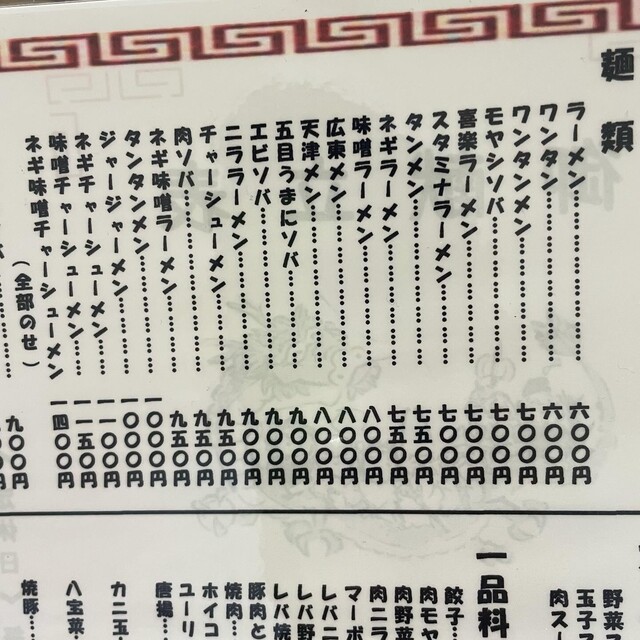 麺類
ラーメン……六〇〇円
ワンタン……六〇〇円
ワンタンメン……七〇〇円
モヤシソバ……七〇〇円
喜楽ラーメン……七〇〇円
スタミナラーメン……七〇〇円
タンメン……七五〇円
ネギラーメン……七五〇円
味噌ラーメン……八〇〇円
広東メン……八〇〇円
天津メン……八〇〇円
五目うまにソバ……九〇〇円
エビソバ……九〇〇円
ニララーメン……九〇〇円
チャーシューメン……九五〇円
肉ソバ……九五〇円
ネギ味噌ラーメン……九五〇円
タンタンメン……一〇〇〇円
ジャージャーメン……一〇〇〇円
ネギチャーシューメン……一一〇〇円
味噌チャーシューメン……一一五〇円
ネギ味噌チャーシューメン 一四〇〇円
(全部のせ)
九〇〇円
野菜
玉子
肉ス
一品料
餃子
肉モヤ
肉野菜
肉ニラ
マーボ
レバニ
レバ野
レバ焼
豚肉と
焼肉…
ホイコ
ユーリ
唐揚…
カニ玉…
八宝菜…
焼豚…